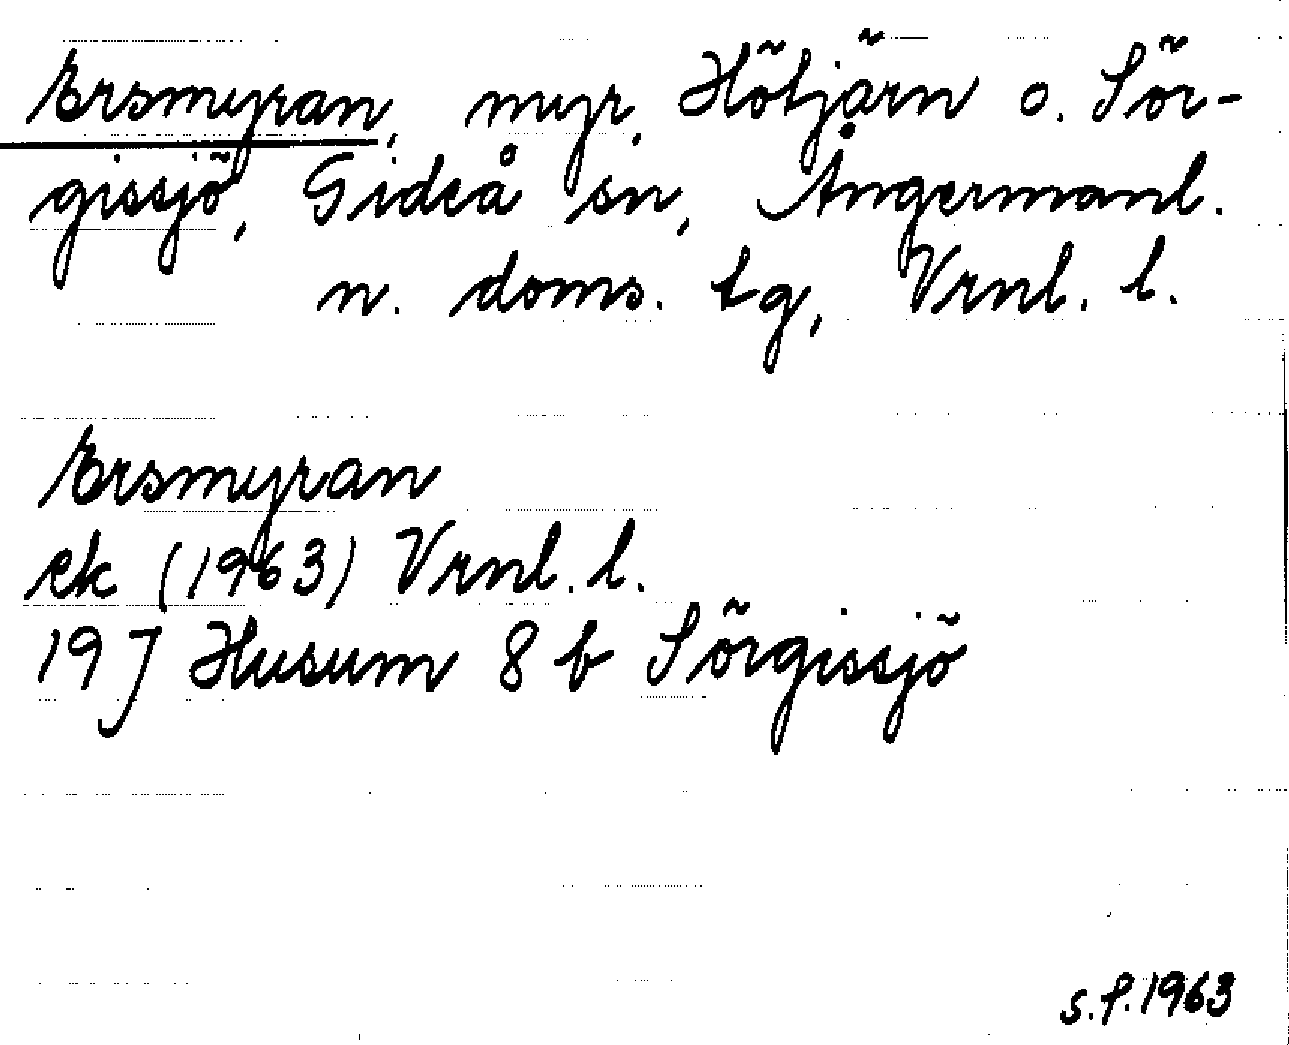 Ersmyran, myr, Hötjärn o. Sör-
gissjö, Gideå sn, Ångermanl.
n. doms. tg, Vrnl. l.
Ersmyran
ek (1963) Vrnl. l.
19 J Husum 8 b Sörgissjö
s.f. 1963